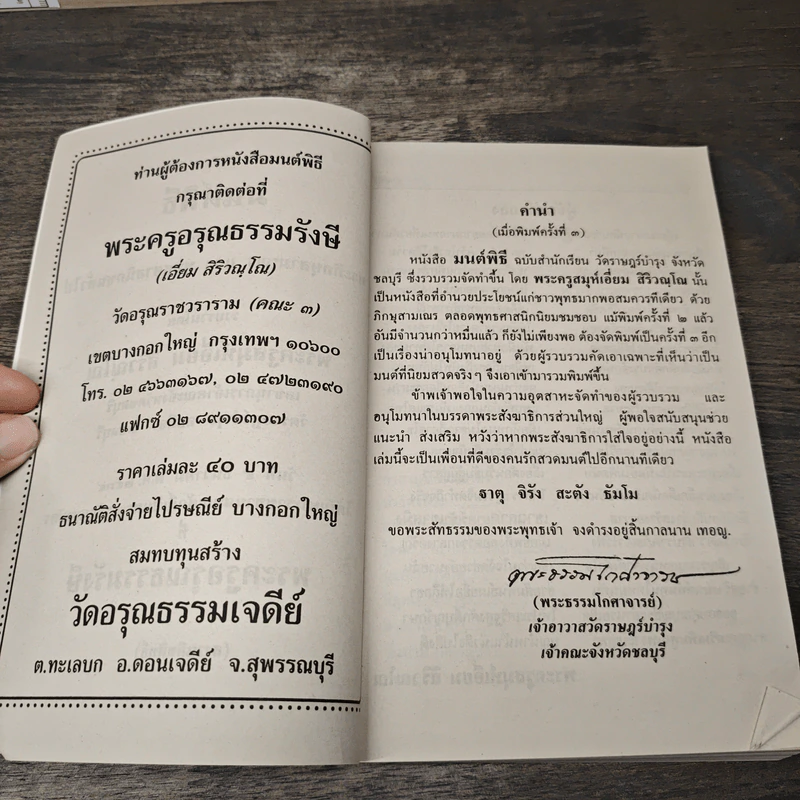 ท่านผู้ต้องการหนังสือมนต์พิธี
กรุณาติดต่อที่
พระครูอรุณธรรมรังษี
(เอี่ยม สิริวณฺโณ)
วัดอรุณราชวราราม (คณะ ๓)
เขตบางกอกใหญ่ กรุงเทพฯ ๑๐๖๐๐
โทร. ๐๒ ๔๖๖๓๑๖๗, ๐๒ ๔๗๒๓๑๙๐
แฟกซ์ ๐๒ ๘๙๑๑๓๐๗
ราคาเล่มละ ๔๐ บาท
ธนาณัติสั่งจ่ายไปรษณีย์ บางกอกใหญ่
สมทบทุนสร้าง
วัดอรุณธรรมเจดีย์
ต.ทะเลบก อ.ดอนเจดีย์ จ.สุพรรณบุรี
คำนำ
(เมื่อพิมพ์ครั้งที่ ๓)
หนังสือ มนต์พิธี ฉบับสำนักเรียน วัดราษฎร์บำรุง จังหวัด
ชลบุรี ซึ่งรวบรวมจัดทำขึ้น โดย พระครูสมุห์เอี่ยม สิริวณฺโณ นั้น
เป็นหนังสือที่อำนวยประโยชน์แก่ชาวพุทธมากพอสมควรทีเดียว ด้วย
ภิกษุสามเณร ตลอดพุทธศาสนิกนิยมชมชอบ แม้พิมพ์ครั้งที่ ๒ แล้ว
อันมีจำนวนกว่าหมื่นแล้ว ก็ยังไม่เพียงพอ ต้องจัดพิมพ์เป็นครั้งที่ ๓ อีก
เป็นเรื่องน่าอนุโมทนาอยู่ ด้วยผู้รวบรวมคัดเอาเฉพาะที่เห็นว่าเป็น
มนต์ที่นิยมสวดจริง ๆ จึงเอาเข้ามารวมพิมพ์ขึ้น
ข้าพเจ้าพอใจในความอุตสาหะจัดทำของผู้รวบรวม และ
อนุโมทนาในบรรดาพระสังฆาธิการส่วนใหญ่ ผู้พอใจสนับสนุนช่วย
แนะนำ ส่งเสริม หวังว่าหากพระสังฆาธิการใส่ใจอยู่อย่างนี้ หนังสือ
เล่มนี้จะเป็นเพื่อนที่ดีของคนรักสวดมนต์ไปอีกนานทีเดียว
ฐาตุ จิรัง สะตัง ธัมโม
ขอพระสัทธรรมของพระพุทธเจ้า จงดำรงอยู่สิ้นกาลนาน เทอญ.
พระธรรมโกศาจารย์
(พระธรรมโกศาจารย์)
เจ้าอาวาสวัดราษฎร์บำรุง
เจ้าคณะจังหวัดชลบุรี